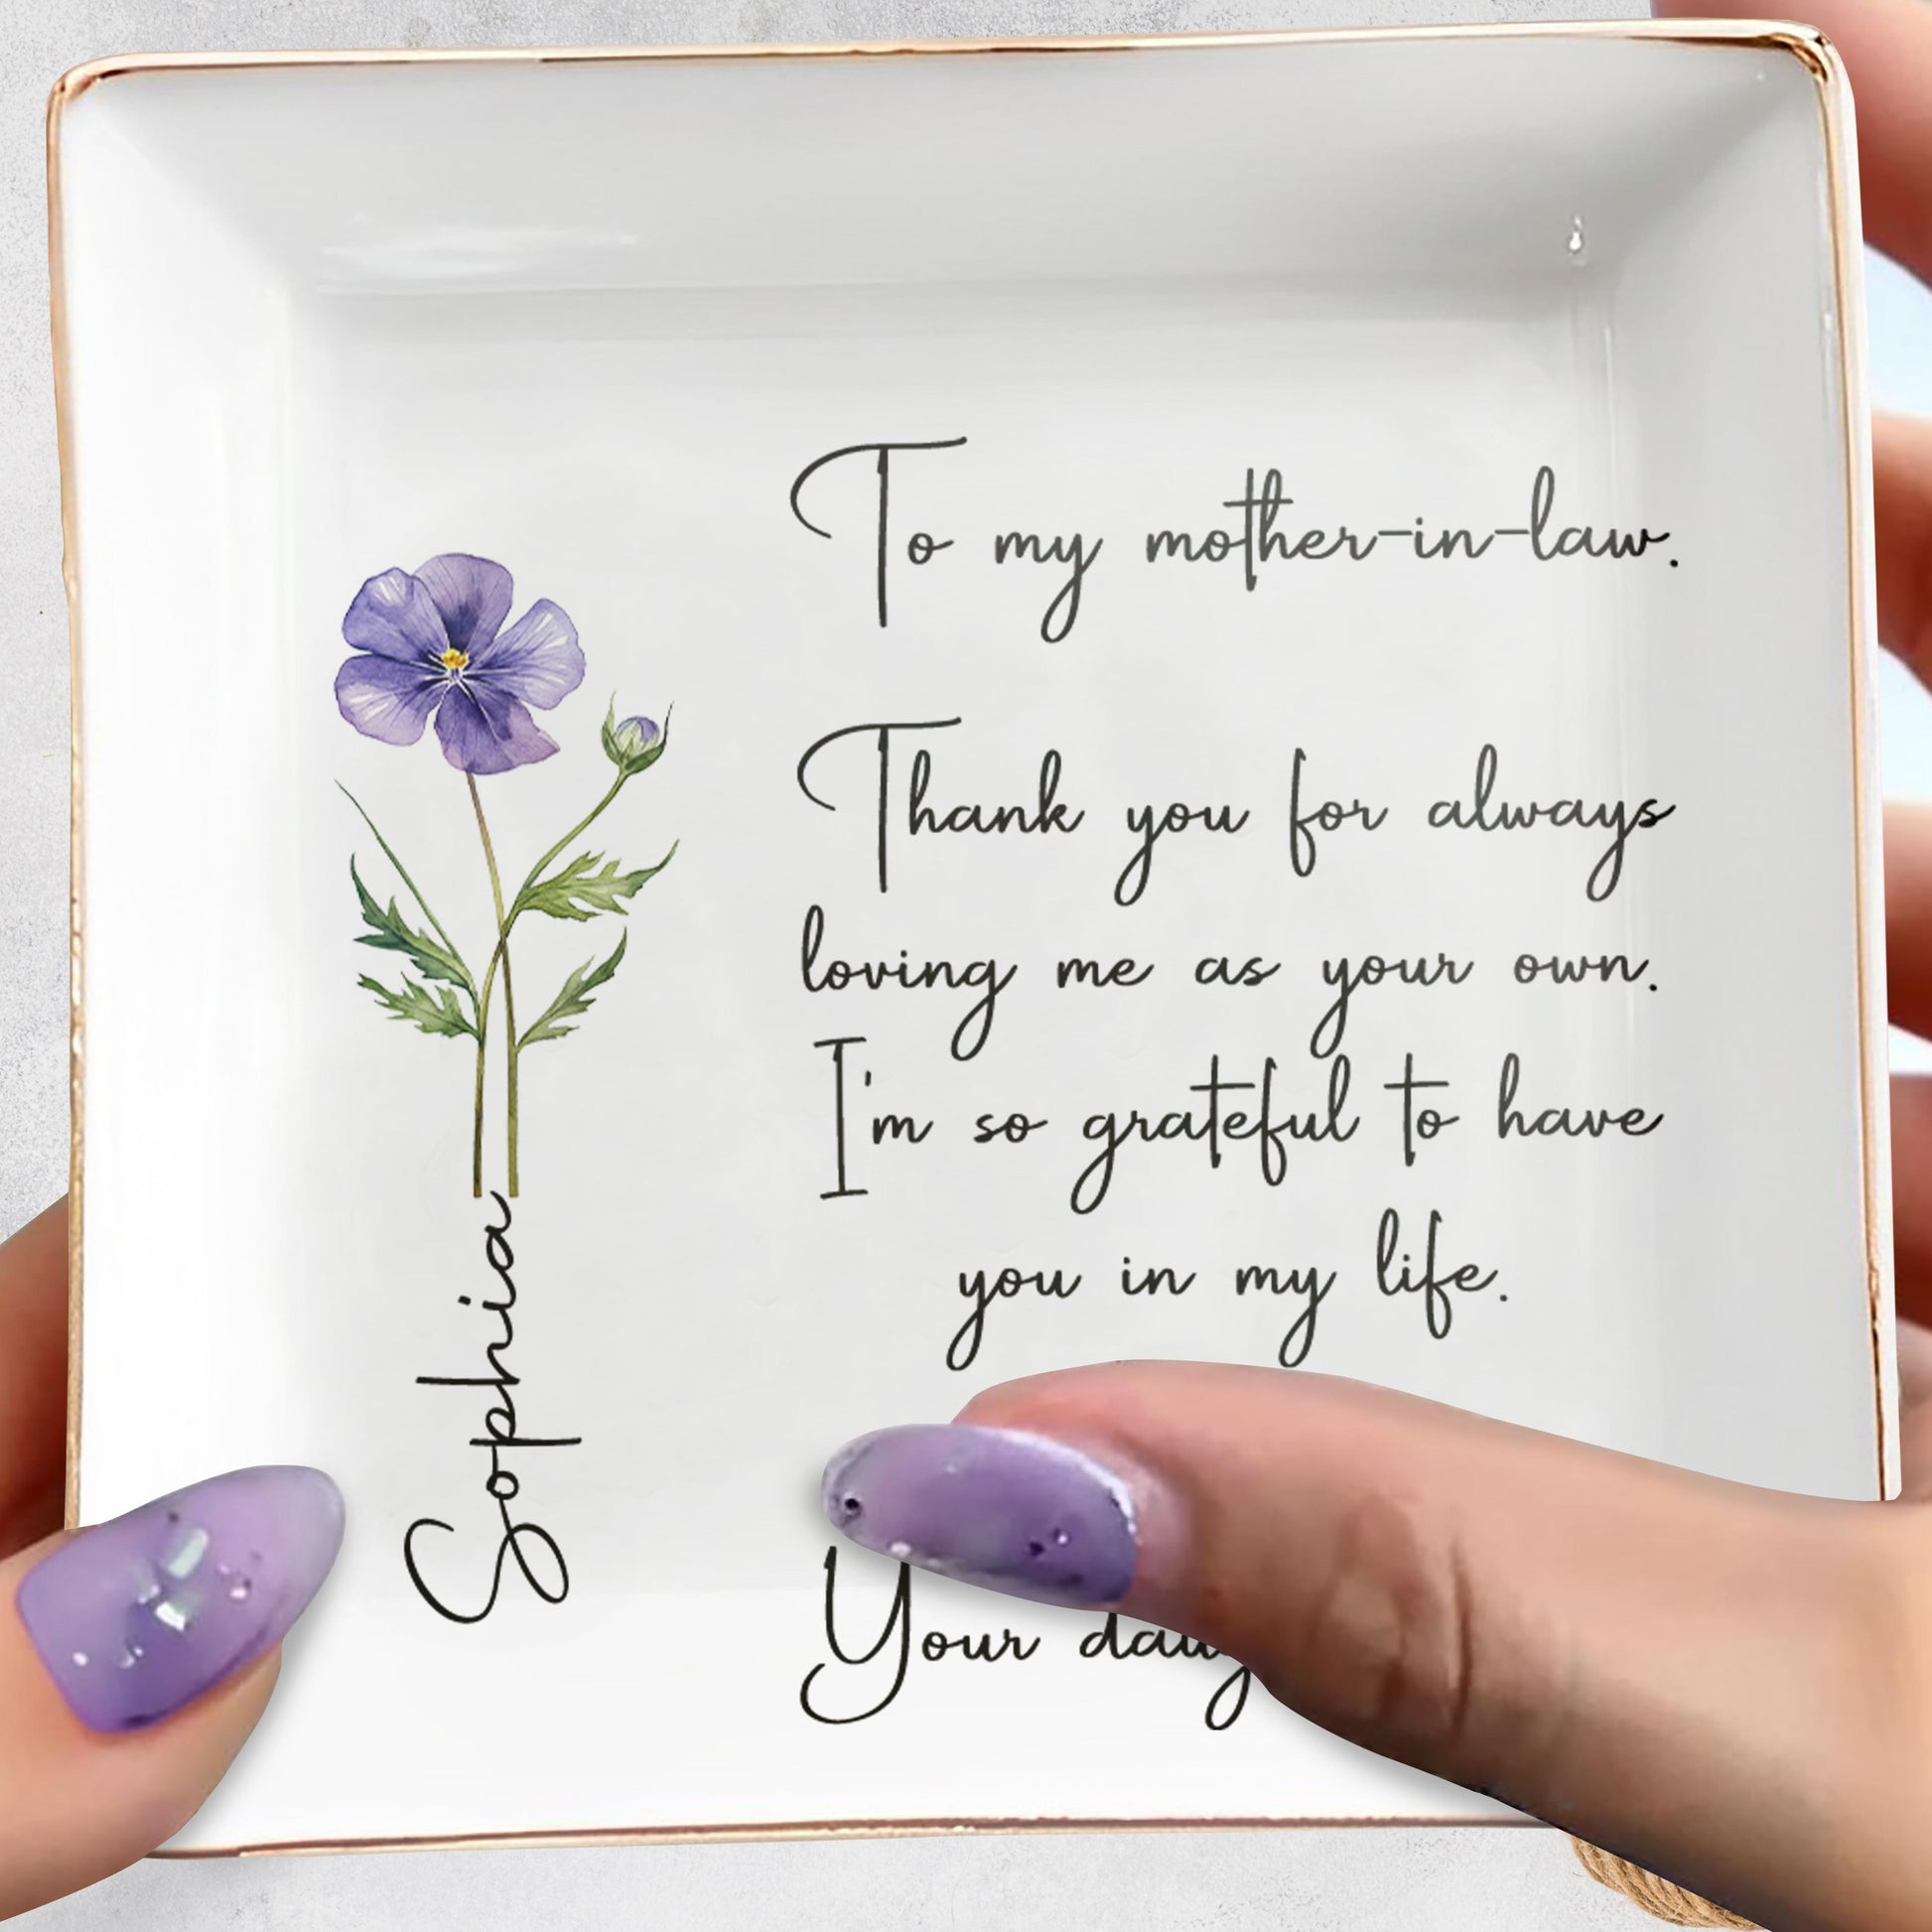 Sophia
To my mother-in-law.
Thank you for always
loving me as your own.
I'm so grateful to have
you in my life.
Your